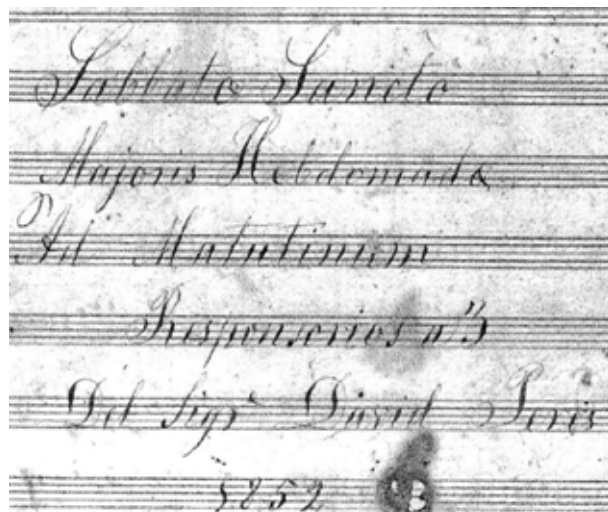 Sabbato Sancto
Majoris Hebdomadæ
Ad Matutinum
Responsorios a 3
Del Sigr David Peris
1852